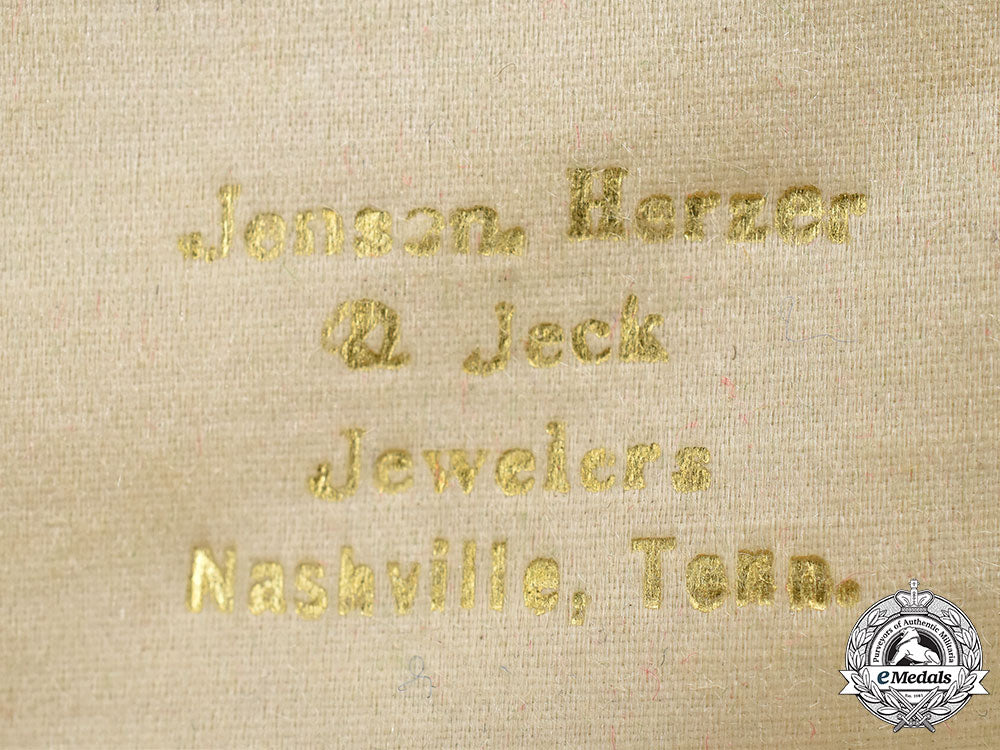 Jensen, Herzer
& Jeck
Jewelers
Nashville, Tenn.
Purveyors of Authentic Militaria
eMedals
Est. 1985